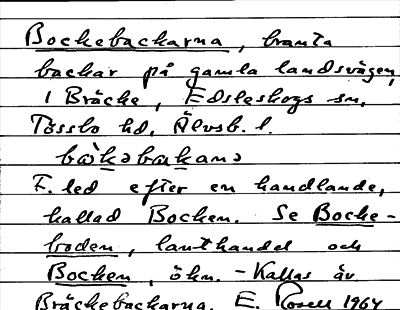 Bockebackarna, branta
backar på gamla landsvägen,
i Bräcke, Edsleskogs sn,
Tössbo hd, Älvsb. l.
bòḱəbaḱanə
F. led efter en handlande,
kallad Bocken. Se Bocke-
boden, lanthandel och
Bocken, ökn. - Kallas äv.
Bräckebackarna. E. Rosell 1964